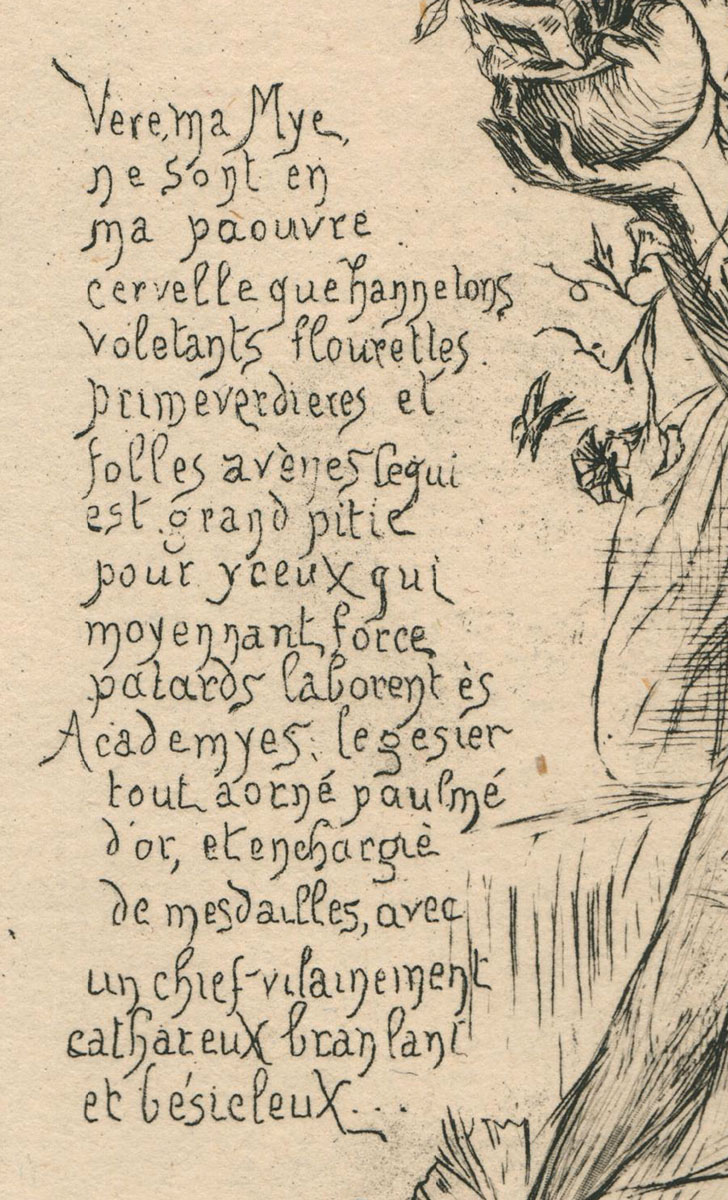 Vere, ma Mye,
ne sont en
ma paouvre
cervelle que hannetons
voletants flourettes
primeverdieres et
folles avènes lequi
est grand pitie
pour yceux qui
moyennant force
patards laborent ès
Academyes, le gesier
tout aorné paulmé
d'or, et enchargiè
de mesdailles, avec
un chief vilainement
cathareux branlant
et bésicleux...